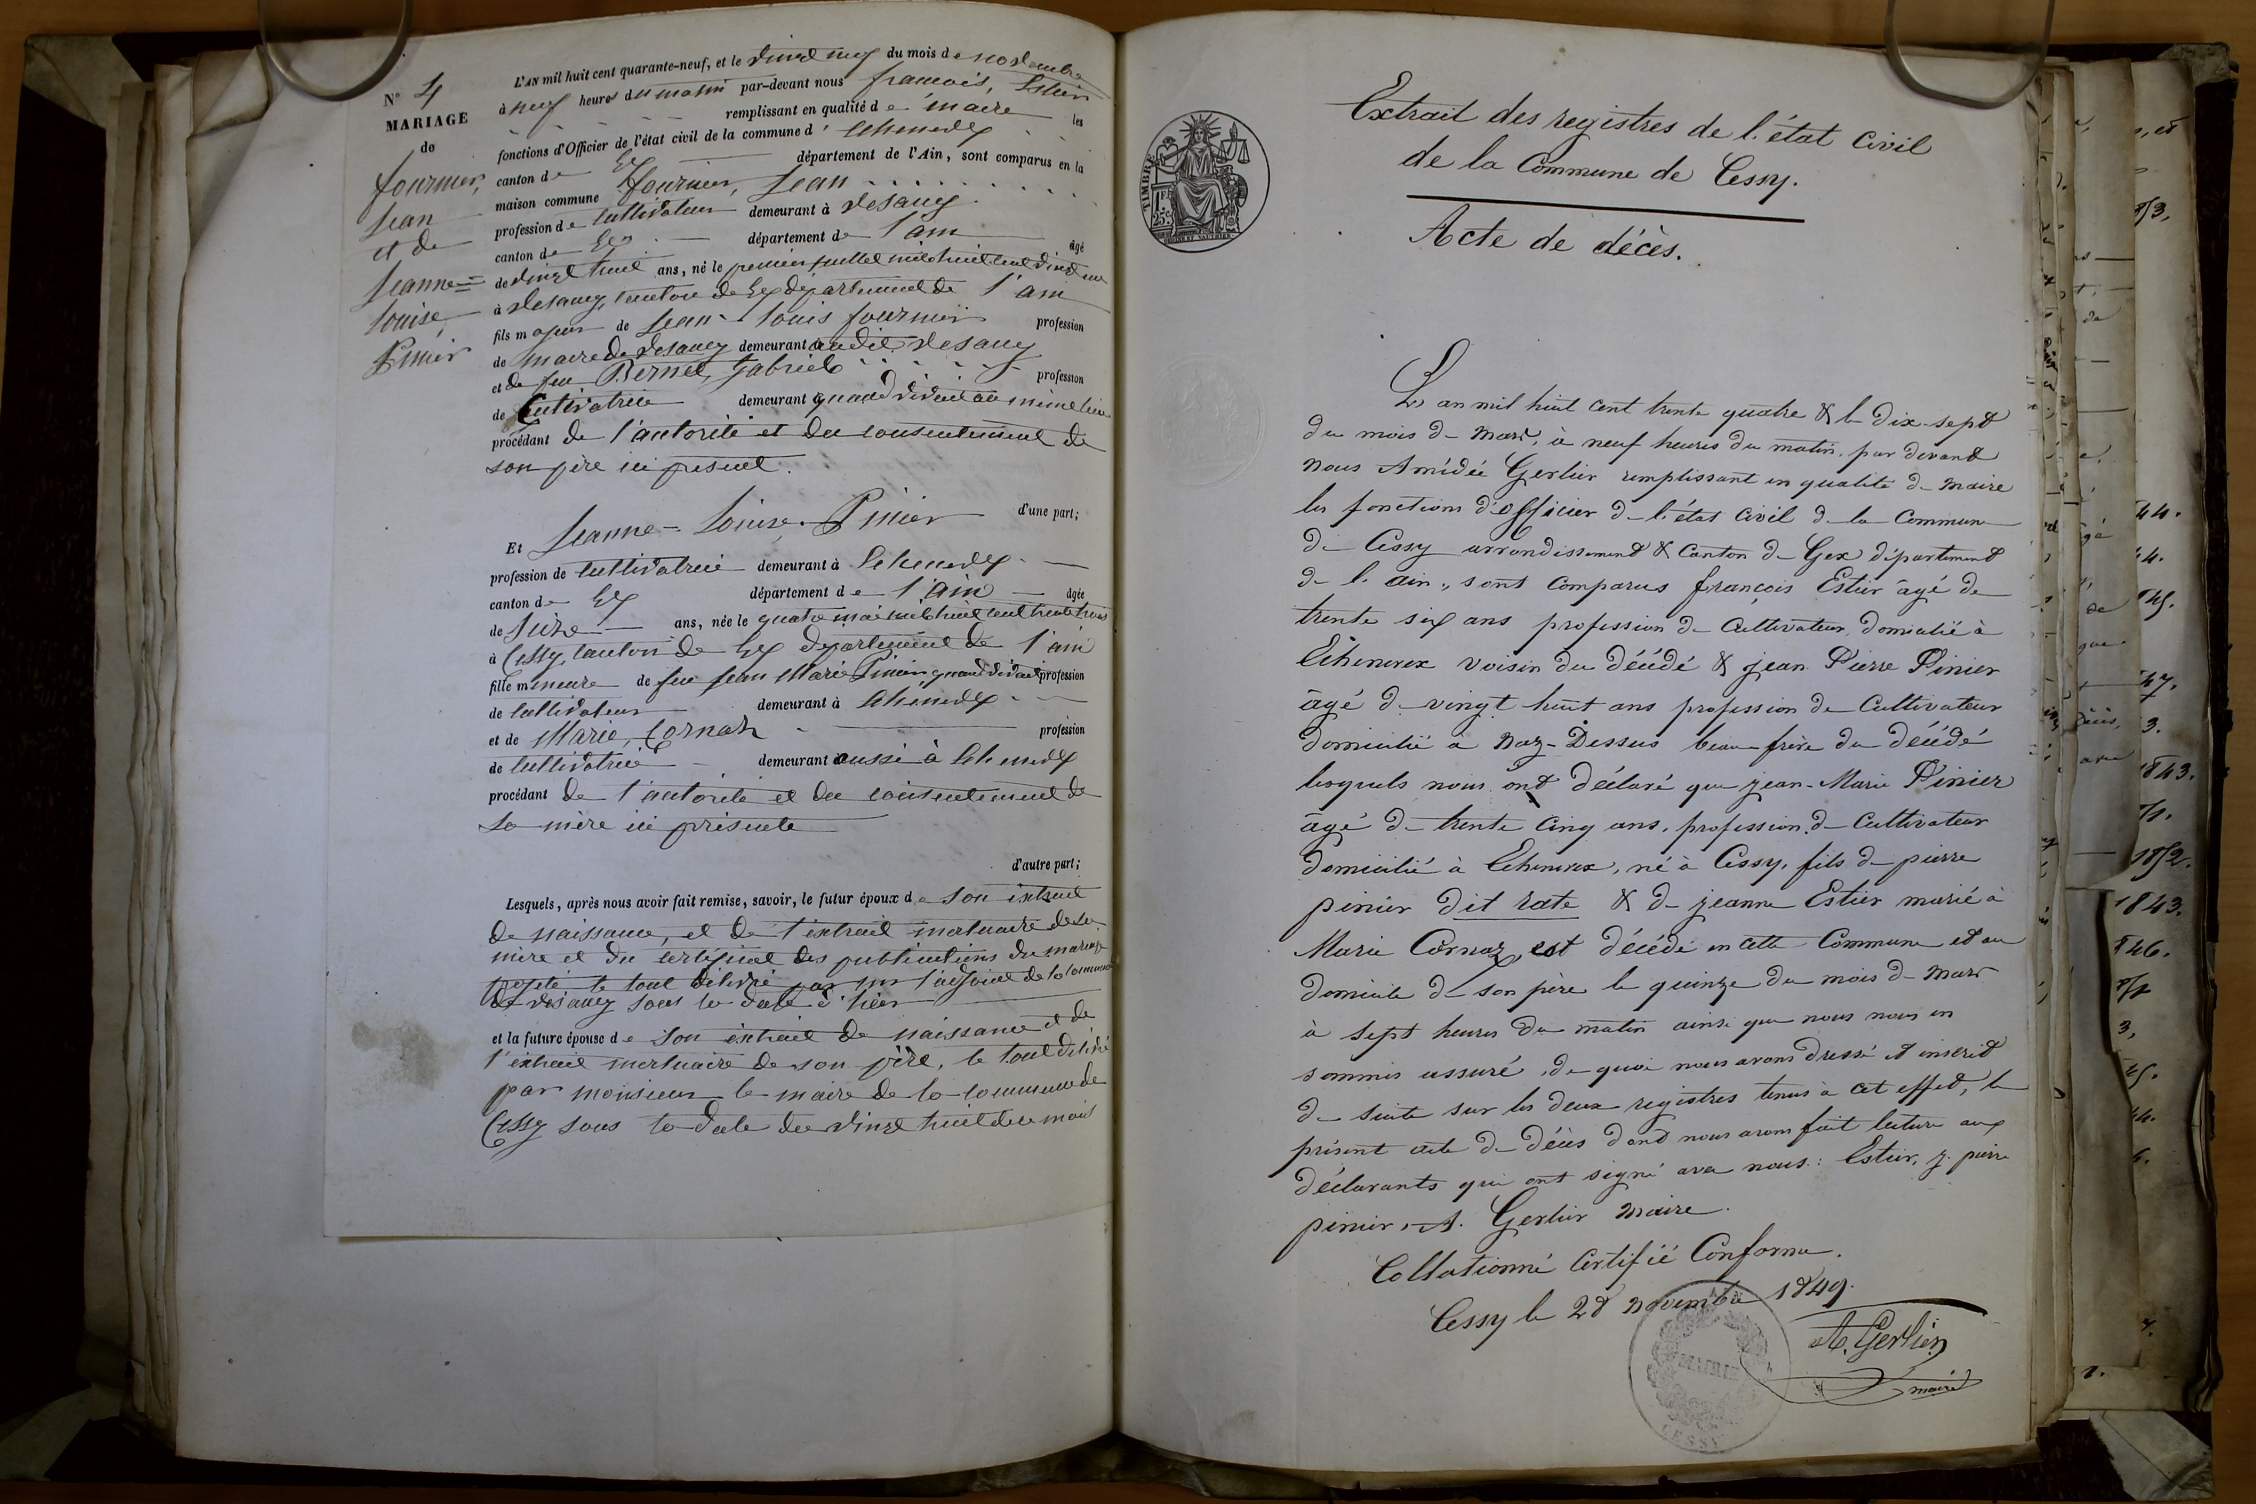 N° 4
MARIAGE
de
fournier,
Jean
et de
Jeanne =
Louise,
Pinier
L'AN mil huit cent quarante-neuf, et le vingt neuf du mois de novembre
à neuf heures du matin par-devant nous françois, Estier
remplissant en qualité de maire les
fonctions d'Officier de l'état civil de la commune d'Echenevex
canton de Gex département de l'Ain, sont comparus en la
maison commune fournier, Jean
profession de cultivateur demeurant à Vesancy
canton de Gex département de l'ain âgé
de vingt huit ans, né le premier juillet mil huit cent vingt un
à Vesancy, canton de Gex département de l'ain
fils majeur de Jean-Louis fournier profession
de maire de Vesancy demeurant audit Vesancy
et de feu Bernet, Gabriele profession
de Cultivatrice demeurant quand vivait au même lieu
procédant de l'autorité et du consentement de
son père ici présent.
d'une part;
Et Jeanne-Louise, Pinier
profession de cultivatrice demeurant à Echenevex
canton de Gex département de l'ain âgée
de seize ans, née le quatre mai mil huit cent trente trois
à Cessy, canton de Gex département de l'ain
fille mineure de feu Jean Marie Pinier, quand vivait profession
de cultivateur demeurant à Echenevex
et de Marie, Cornaz profession
de cultivatrice demeurant aussi à Echenevex
procédant de l'autorité et du consentement de
sa mère ici présente
d'autre part;
Lesquels, après nous avoir fait remise, savoir, le futur époux de son extrait
de naissance, et de l'extrait mortuaire de sa
mère et du certificat des publications du mariage
projeté le tout délivré par l'adjoint de la commune
de Vesancy sous la date d'hier
et la future épouse de son extrait de naissance et de
l'extrait mortuaire de son père, le tout délivré
par monsieur le maire de la commune de
Cessy sous la date du vingt huit du mois
TIMBRE
1F
25c
Extrait des registres de l'état civil
de la Commune de Cessy.
Acte de décès.
L'an mil huit cent trente quatre & le dix-sept
du mois de Mars, à neuf heures du matin, par devant
nous Amédée Gerlier remplissant en qualité de maire
les fonctions d'officier de l'état Civil de la Commune
de Cessy arrondissement & Canton de Gex département
de l'ain, sont Comparus françois Estier âgé de
trente six ans profession de Cultivateur, domicilié à
Echenevex voisin du décédé & jean Pierre Pinier
âgé de vingt huit ans profession de Cultivateur
domicilié à Naz-Dessus beau-frère du décédé
lesquels nous ont déclaré que jean-Marie Pinier
âgé de trente Cinq ans, profession de Cultivateur
domicilié à Echenevex, né à Cessy, fils de pierre
pinier dit rate & de jeanne Estier marié à
Marie Cornaz, est décédé en cette Commune et au
domicile de son père le quinze du mois de Mars
à sept heures du matin ainsi que nous nous en
sommes assuré, de quoi nous avons dressé et inscrit
de suite sur les deux registres tenus à cet effet, le
présent acte de décès dont nous avons fait lecture aux
déclarants qui ont signé avec nous: Estier, j. pierre
pinier, A. Gerlier Maire.
Collationné Certifié Conforme.
Cessy le 28 novembre 1849.
A. Gerlier
maire
MAIRIE
CESSY